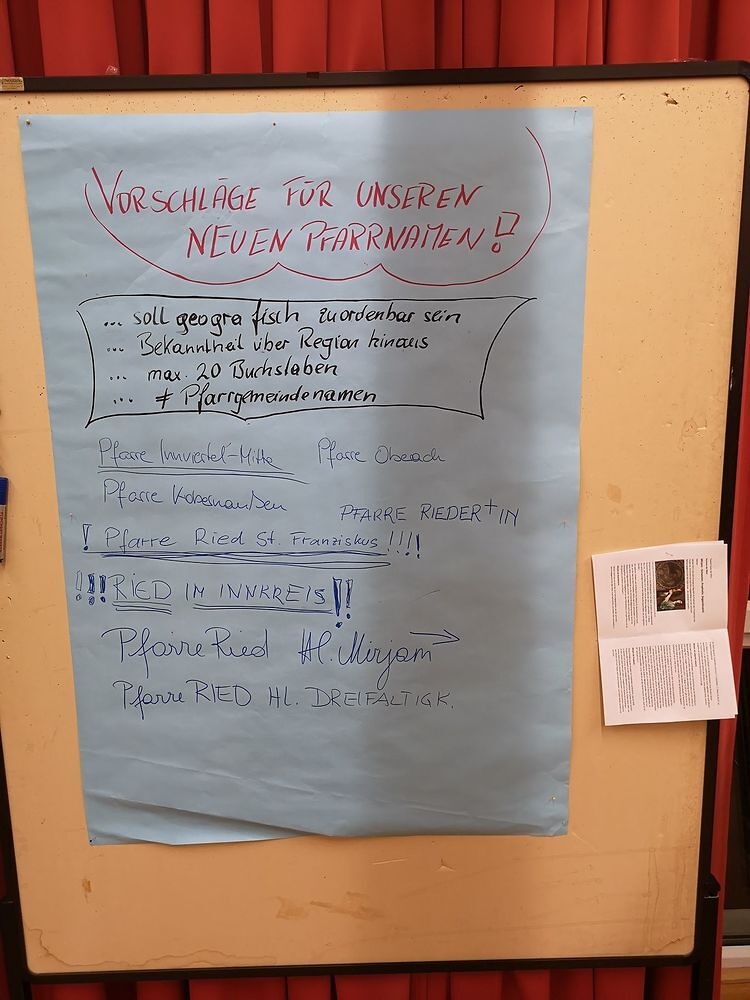 VORSCHLÄGE FÜR UNSEREN
NEUEN PFARRNAMEN!?
... soll geografisch zuordenbar sein
... Bekanntheit über Region hinaus
... max. 20 Buchstaben
... ≠ Pfarrgemeindenamen
Pfarre Innviertel-Mitte Pfarre Oberach
Pfarre Kobernaußen
PFARRE RIEDER+IN
! Pfarre Ried St. Franziskus !!!!
!!! RIED IM INNKREIS !!
Pfarre Ried Hl. Mirjam →
Pfarre RIED HL. DREIFALTIGK.